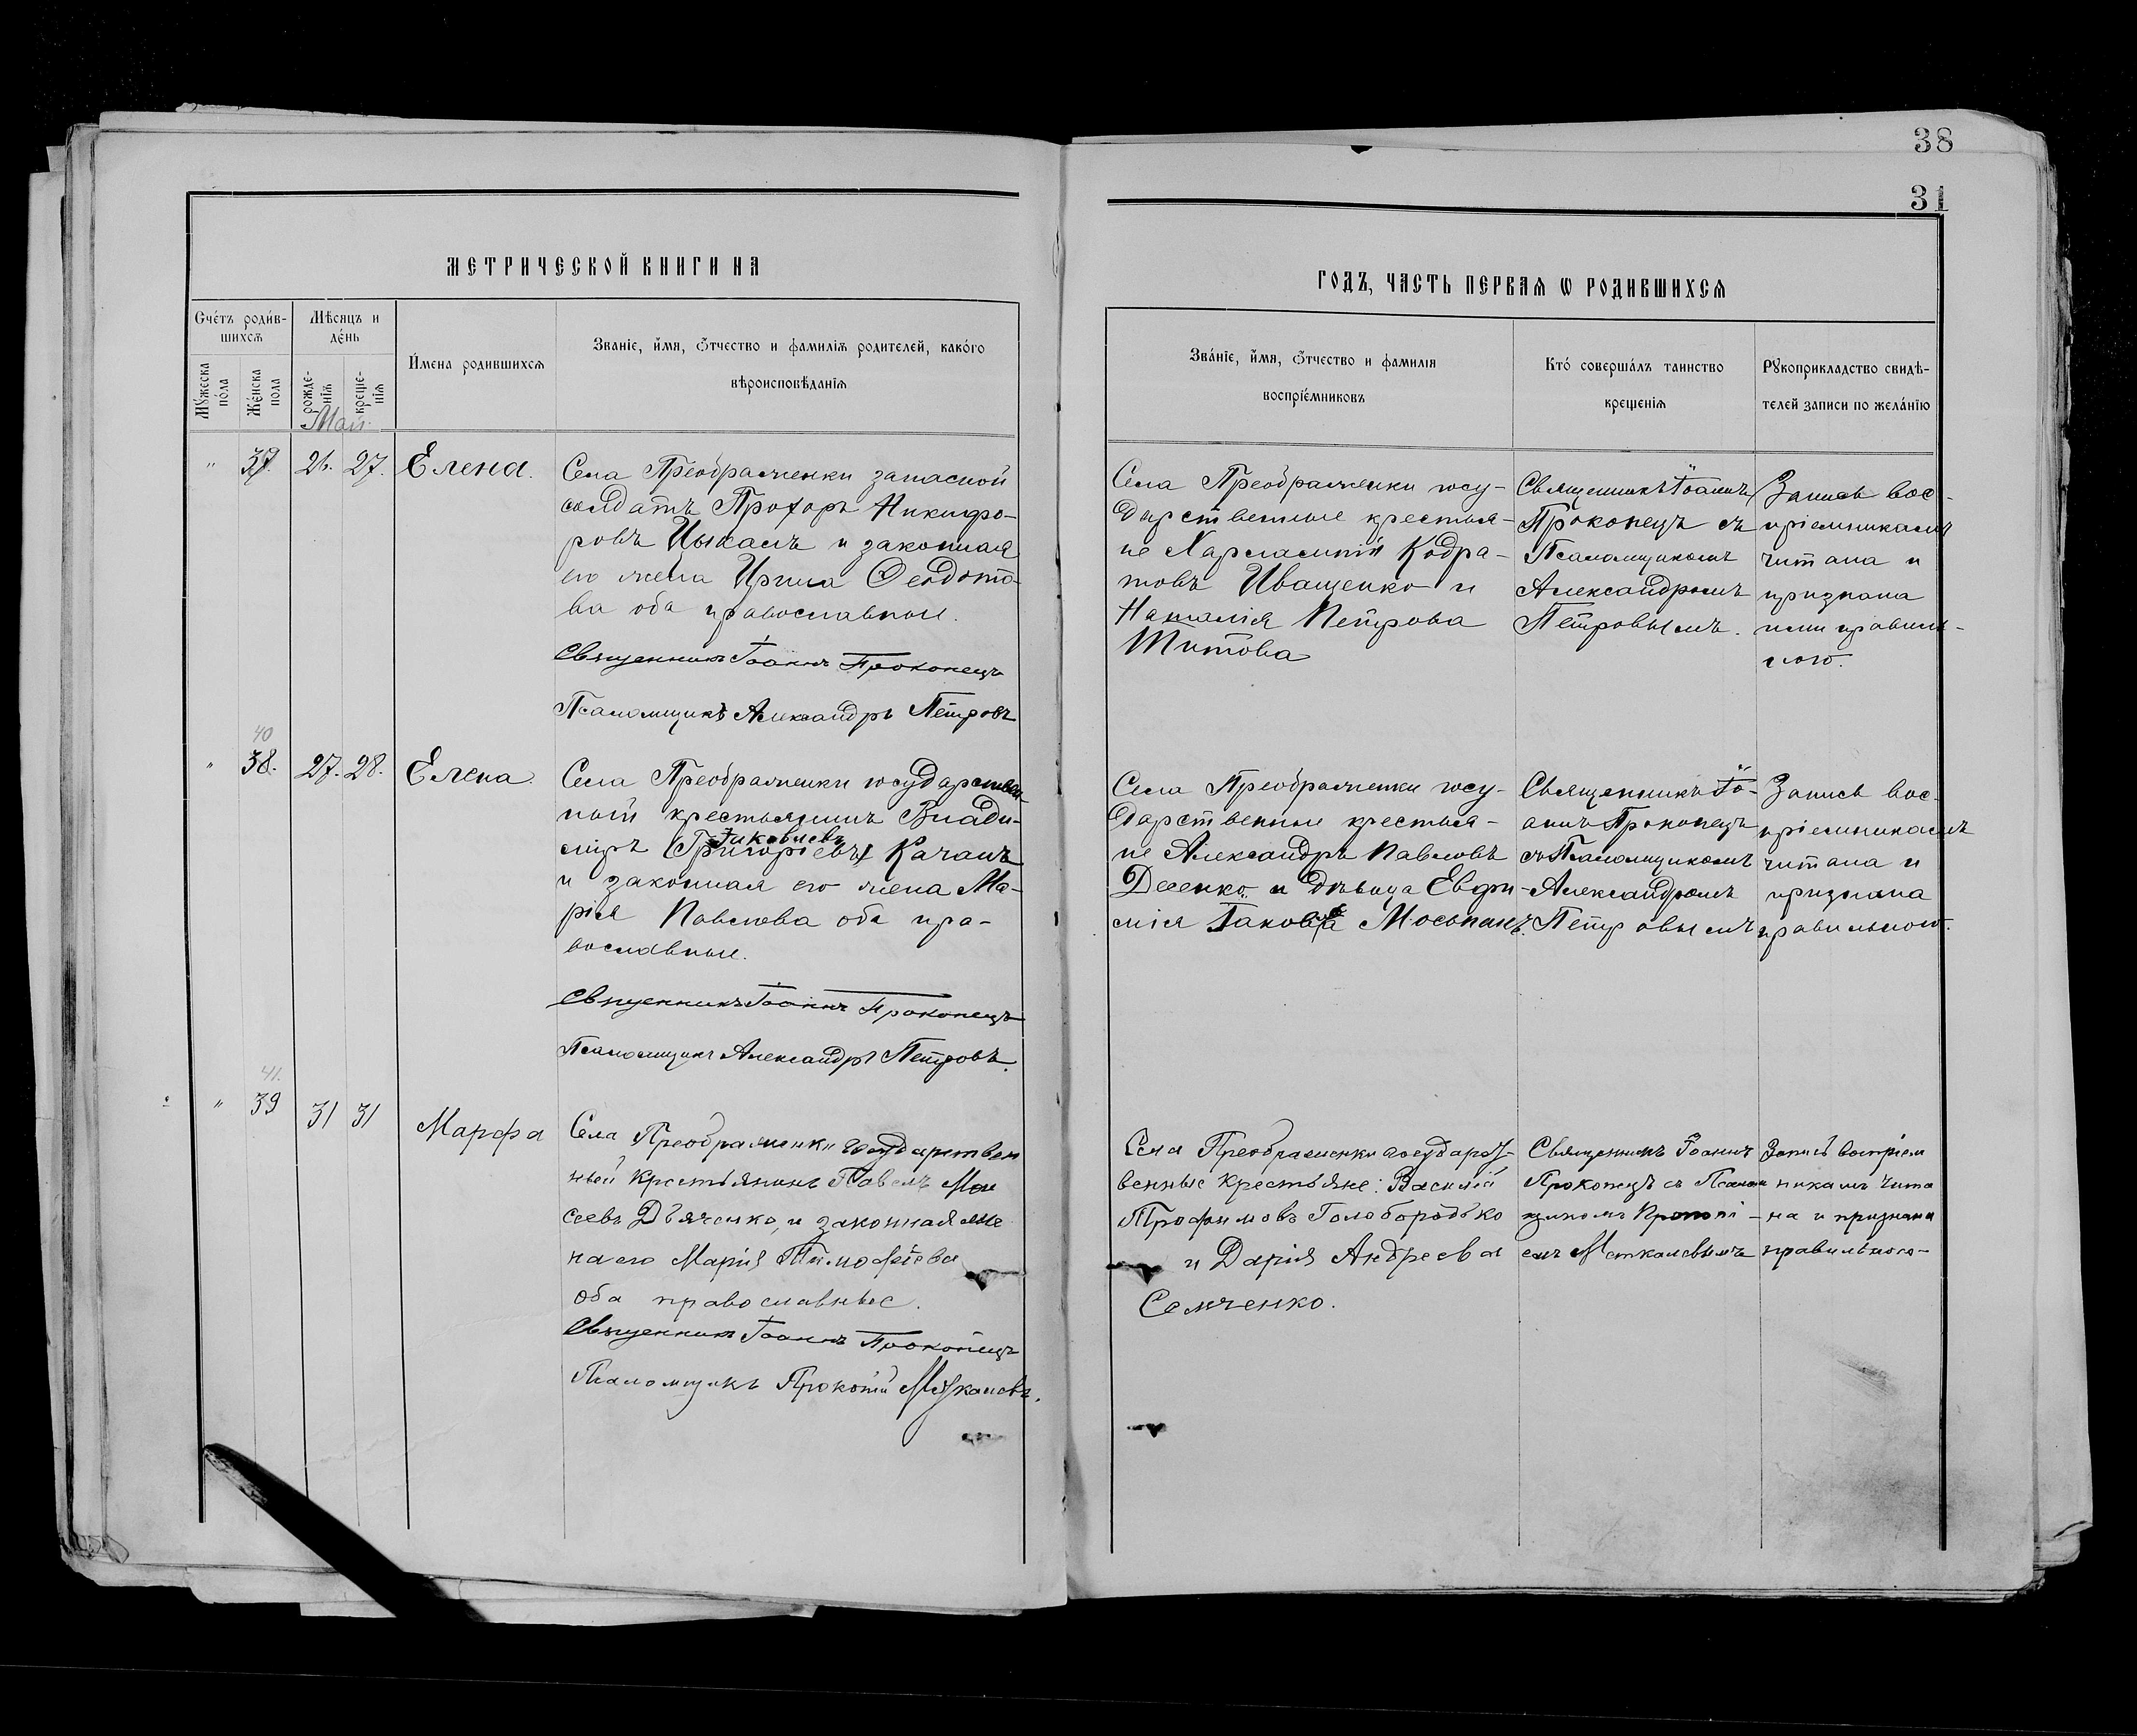 38
31
МЕТРИЧЕСКОЙ КНИГИ НА
ГОДЪ, ЧАСТЬ ПЕРВАѦ Ѡ РОДИВШИХСѦ
Счéтъ роди́в-
шихсѧ
Мѣсяцъ и
дéнь
Мꙋ́жеска
пóла
Жéнска
пола
рожде-
нїѧ
креще-
нїѧ
И́мена родившихсѧ
Званїе, и́мя, ѻтчество и фамилїѧ родителей, какóго
вѣроисповѣданїѧ
Звáнїе, и́мя, ѻтчество и фамилїя
воспрїéмниковъ
Ктó совершáлъ таинство
крещенїѧ
Рꙋкоприкладство свидѣ-
телей записи по желáнїю
Май.
" 37. 26. 27. Елена.
Села Преображенки запасной
солдатъ Прохоръ Никифо-
ровъ Цыкалъ и законная
его жена Ирина Феодото-
ва оба православные.
Священникъ Іоаннъ Прокопецъ
Псаломщикъ Александръ Петровъ
Села Преображенки госу-
дарственные крестья-
не Харлампій Кодра-
товъ Иващенко и
Наталія Петрова
Титова
Священникъ Іоаннъ
Прокопецъ съ
Псаломщикомъ
Александромъ
Петровымъ.
Запись вос-
пріемникамъ
читана и
признана
ими правиль-
ною.
40
" 38. 27. 28. Елена.
Села Преображенки государствен-
ный крестьянинъ Влади-
Іаковлевъ
міръ (Григоріевъ) Качанъ
и законная его жена Ма-
рія Павлова оба пра-
вославные.
Священникъ Іоаннъ Прокопецъ
Псаломщикъ Александръ Петровъ.
Села Преображенки госу-
дарственные крестья-
не Александръ Павловъ
Десенко и дѣвица Евфи-
мія Іакова Мосьпанъ.
Священникъ Іо-
аннъ Прокопецъ
съ Псаломщикомъ
Александромъ
Петровымъ
Запись вос-
пріемникамъ
читана и
признана
правильною.
41.
" 39 31 31 Марфа
Села Преображенки государствен
ный крестьянинъ Павелъ Мои
сеевъ Дьяченко, и законная же
на его Марія Тимофеева
оба православные.
Священникъ Іоаннъ Прокопецъ
Псаломщикъ Прокопій Меткалевъ.
Села Преображенки государст-
венные крестьяне: Василій
Трофимовъ Голобородько
и Дарія Андреева
Семченко.
Священникъ Іоаннъ
Прокопецъ съ Псалом
щикомъ Прокопі-
емъ Меткалевымъ
Запись воспріем
никамъ чита
на и признана
правильною-